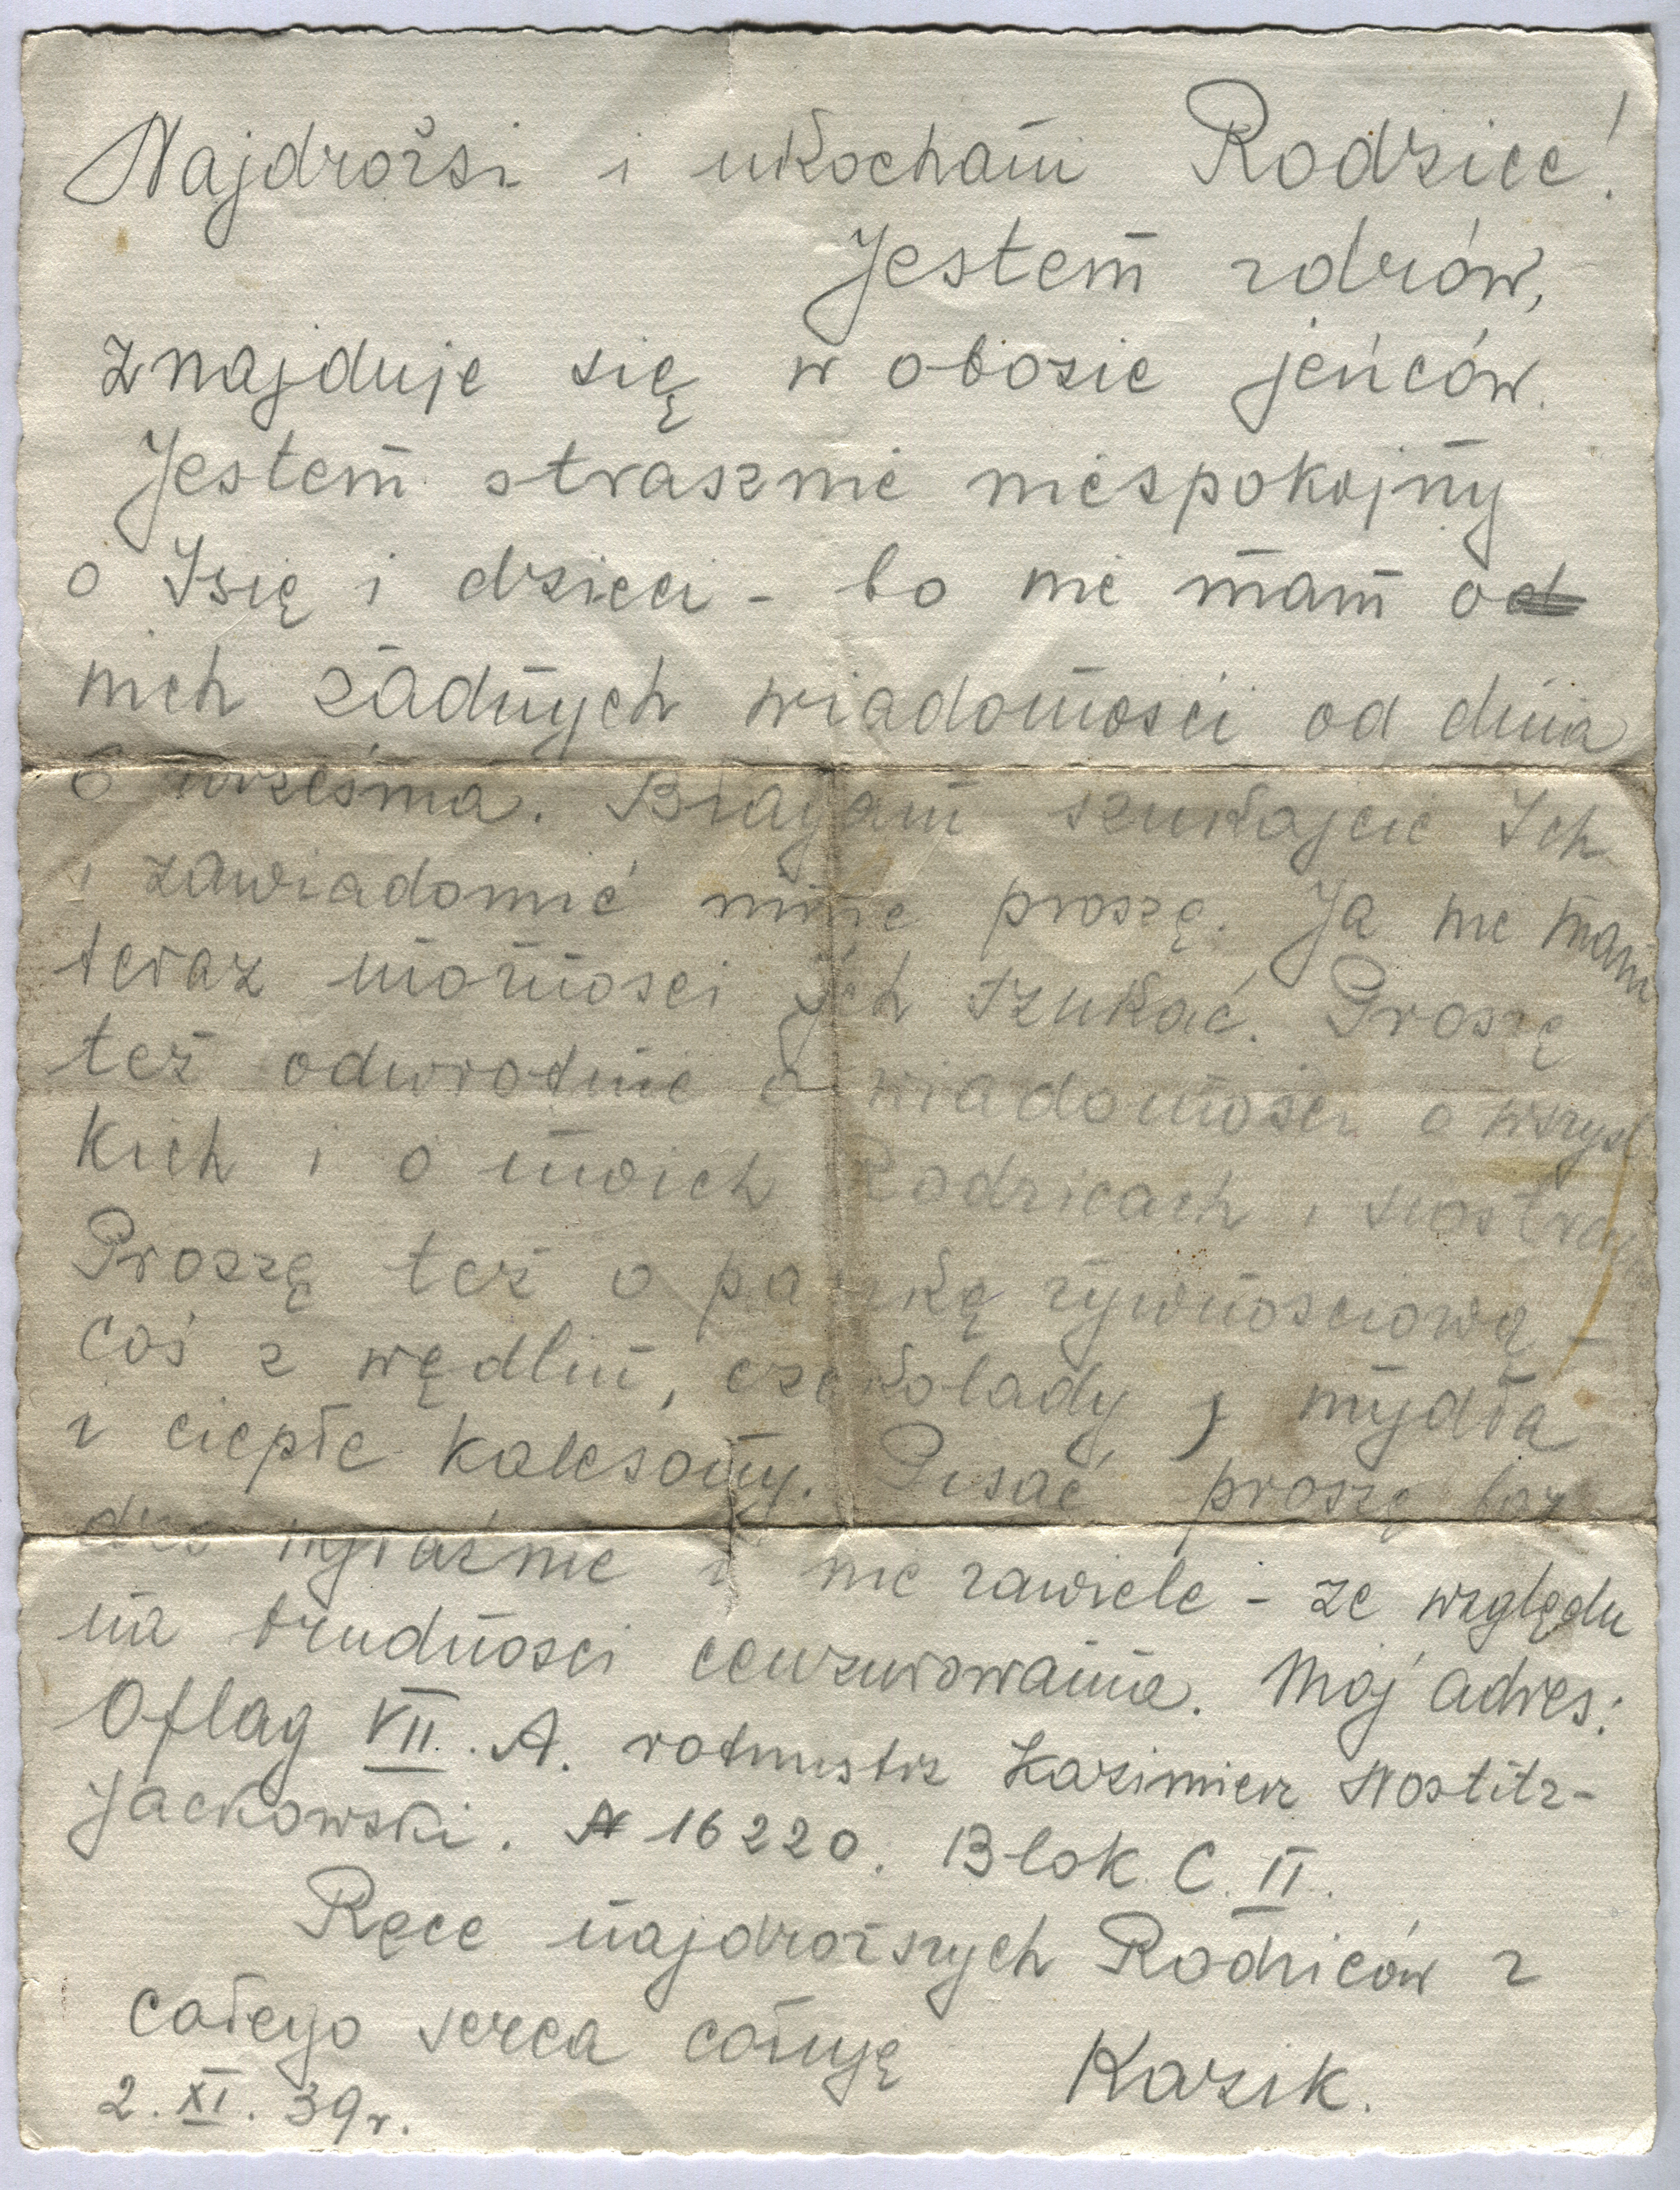 Najdrożsi i ukochani Rodzice!
Jestem zdrów,
znajduje się w obozie jeńców.
Jestem strasznie niespokojny
o Isię i dzieci - bo nie mam od
nich żadnych wiadomości od dnia
6 września. Błagam szukajcie Ich
i zawiadomić mnie proszę. Ja nie mam
teraz możności Ich szukać. Proszę
też odwrotnie o wiadomości o wszyst
kich i o moich Rodzicach i siostrach
Proszę też o paczkę żywnościową -
coś z wędlin, czekolady, mydła
i ciepłe kalesony. Pisać proszę bar
dzo wyraźnie i nie zawiele - ze względu
na trudności cenzurowania. Mój adres:
Oflag VII. A. rotmistrz Kazimierz Nostitz-
Jackowski. N 16220. Blok C. II.
Ręce najdroższych Rodziców z
całego serca całuję Kazik.
2. XI. 39 r.